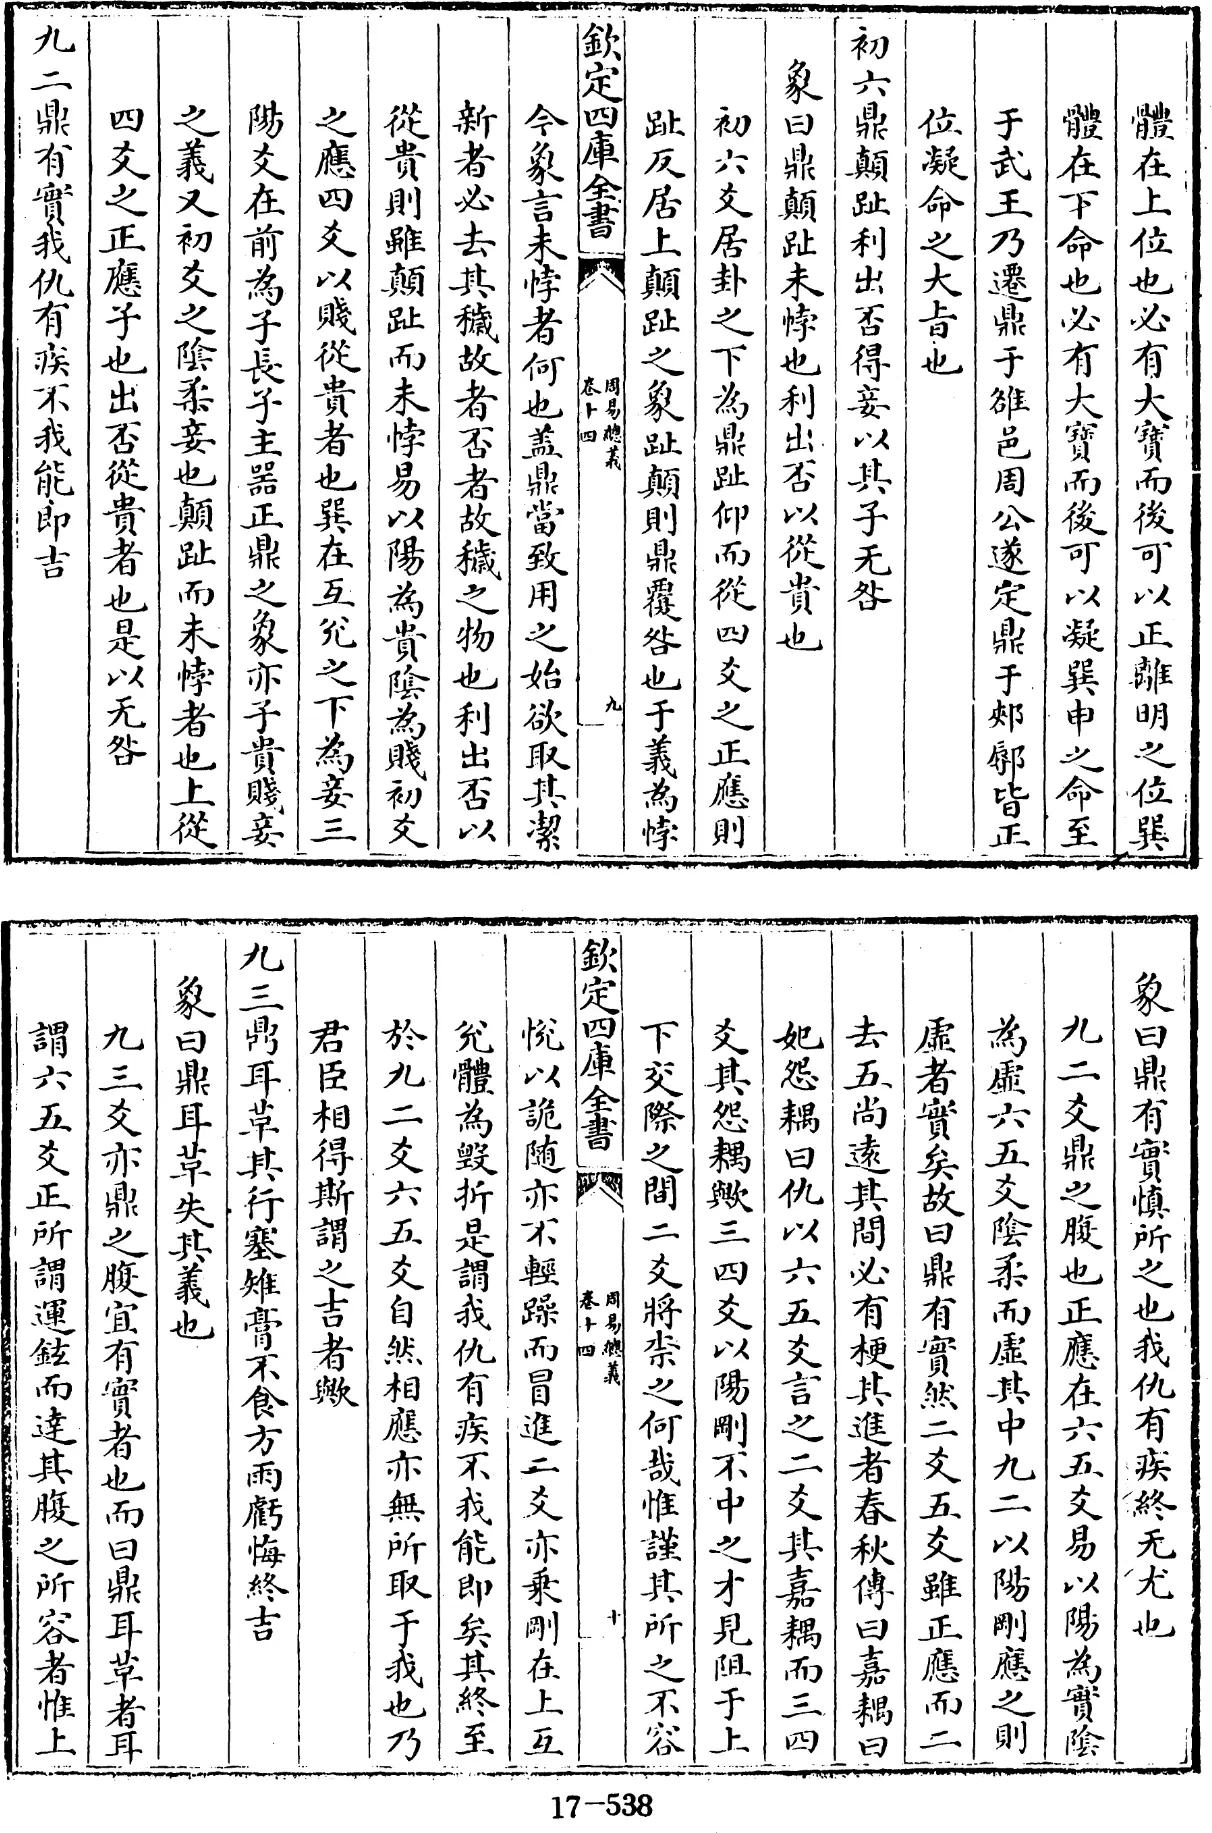 體在上位也必有大寶而後可以正離明之位巽
體在下命也必有大寳而後可以凝巽申之命至
于武王乃遷鼎于雒邑周公遂定鼎于郟鄏皆正
位凝命之大旨也
初六鼎顛趾利出否得妾以其子无咎
象曰鼎顛趾未悖也利出否以從貴也
初六爻居卦之下為鼎趾仰而從四爻之正應則
趾反居上顛趾之象趾顛則鼎覆咎也于義為悖
欽定四庫全書
周易總義
卷十四
九
今象言未悖者何也葢鼎當致用之始欲取其潔
新者必去其穢故者否者故穢之物也利出否以
從貴則雖顛趾而未悖易以陽為貴陰為賤初爻
之應四爻以賤從貴者也巽在互兊之下為妾三
陽爻在前為子長子主器正鼎之象亦子貴賤妾
之義又初爻之陰柔妾也顛趾而未悖者也上從
四爻之正應子也出否從貴者也是以无咎
九二鼎有實我仇有疾不我能即吉
象曰鼎有實慎所之也我仇有疾終无尤也
九二爻鼎之腹也正應在六五爻易以陽為實陰
為虚六五爻陰柔而虚其中九二以陽剛應之則
虚者實矣故曰鼎有實然二爻五爻雖正應而二
去五尚遠其間必有梗其進者春秋傳曰嘉耦曰
妃怨耦曰仇以六五爻言之二爻其嘉耦而三四
爻其怨耦歟三四爻以陽剛不中之才見阻于上
下交際之間二爻將柰之何哉惟謹其所之不容
欽定四庫全書
周易總義
卷十四
十
悦以詭随亦不輕躁而冒進二爻亦乘剛在上互
兊體為毀折是謂我仇有疾不我能即矣其終至
於九二爻六五爻自然相應亦無所取于我也乃
君臣相得斯謂之吉者歟
九三鼎耳革其行塞雉膏不食方雨虧悔終吉
象曰鼎耳革失其義也
九三爻亦鼎之腹宜有實者也而曰鼎耳革者耳
謂六五爻正所謂運鉉而達其腹之所容者惟上
17-538